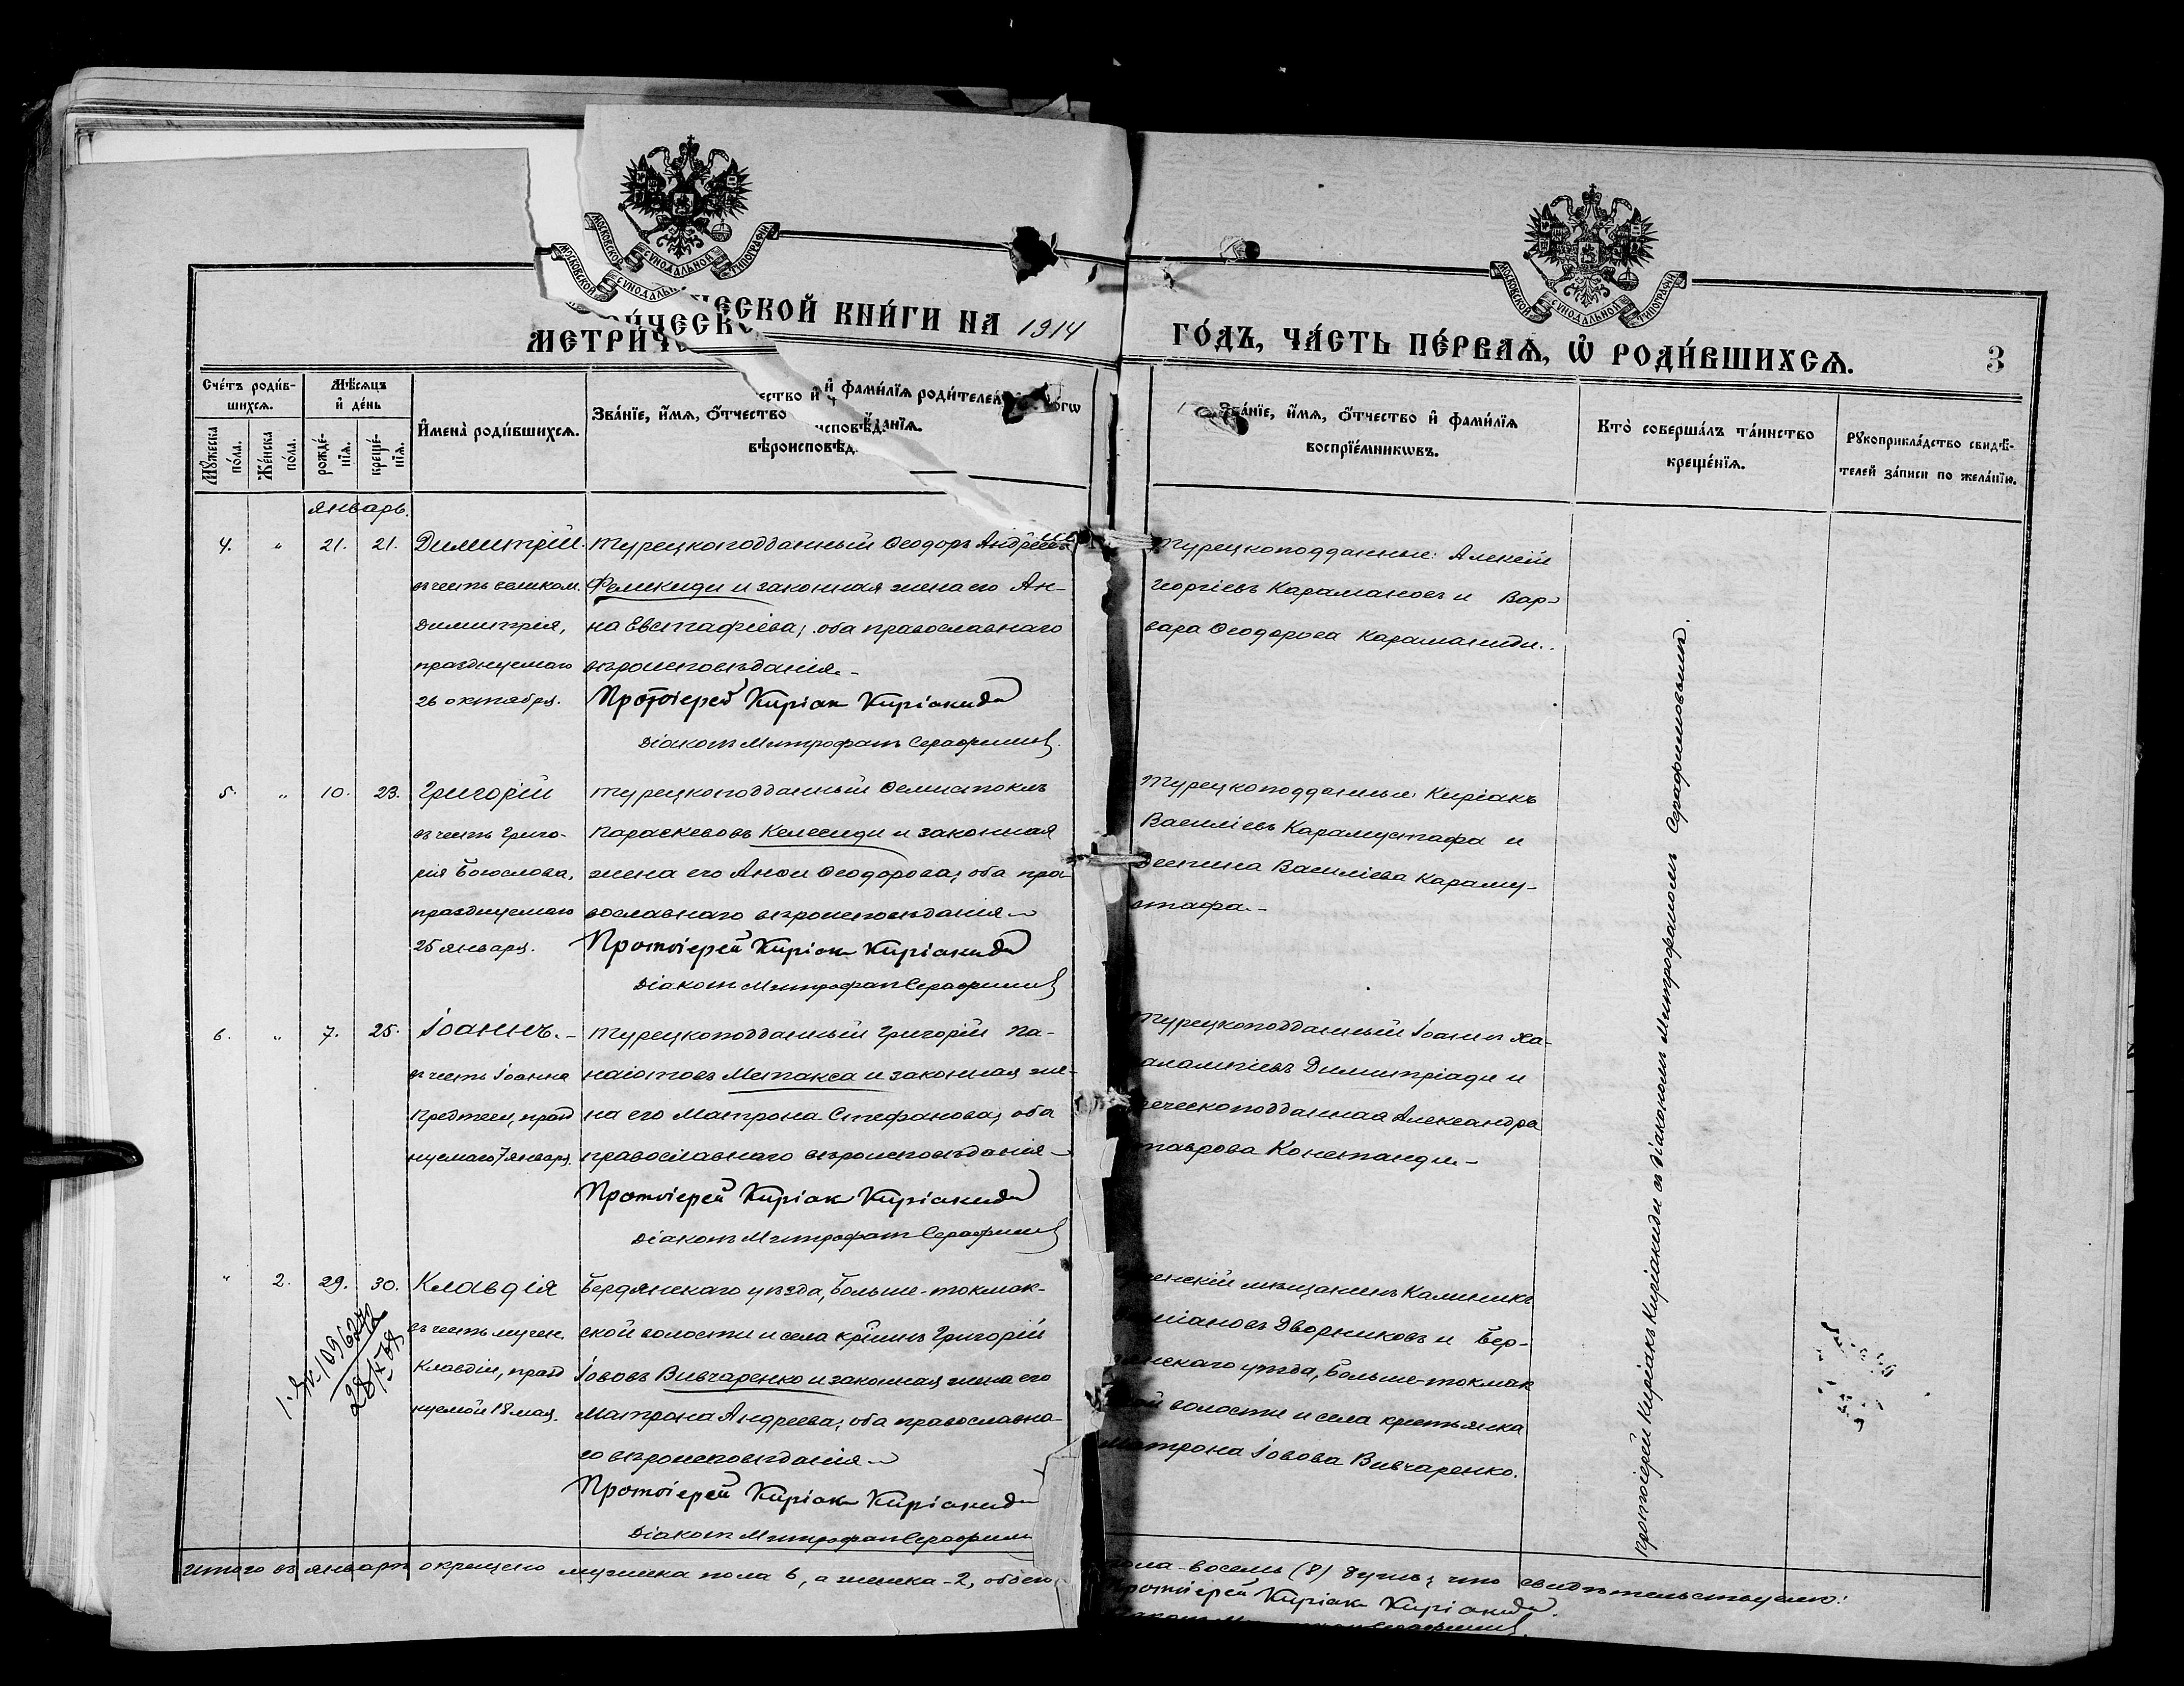 МОСКОВСКОЙ СУНОДАЛЬНОЙ ТИПОГРАФІИ
МОСКОВСКОЙ СУНОДАЛЬНОЙ
МОСКОВСКОЙ СУНОДАЛЬНОЙ ТИПОГРАФІИ
МЕТРИ́ЧЕСКОЙ КНИ́ГИ НА 1914
ГО́ДЪ, ЧА́СТЬ ПЕ́РВАѦ, Ѡ҆ РОДИ́ВШИХСѦ.
3
Сче́тъ роди́в-
шихсѧ.
Мꙋ́жеска
по́ла.
Же́нска
по́ла.
Мѣ́сѧцъ
и҆ де́нь
рожде́-
нїѧ.
креще́-
нїѧ.
И҆мена̀ роди́вшихсѧ.
Зва́нїе, и҆́мѧ, ѻ҆́тчество
и҆ фами́лїѧ роди́телей
вѣроисповѣд.
Зва́нїе, и҆́мѧ, ѻ҆́тчество и҆ фами́лїѧ
воспрїе́мникωвъ.
Кто̀ соверша́лъ та́инство
креще́нїѧ.
Рꙋкоприкла́дство свидѣ́-
телей за́писи по жела́нїю.
Январь.
4. " 21. 21. Димитрій.
въ честь великом.
Димитрія,
празднуемаго
26 октября.
Турецкоподданный Ѳеодоръ Андреевъ
Фемекиди и законная жена его Ан-
на Евстафіева; оба православнаго
вѣроисповѣданія.-
Протоіерей Киріак Киріакиди
Діаконъ Митрофанъ Серафимов
Турецкоподданные: Алексій
Георгіевъ Карамановъ и Вар-
вара Ѳеодорова Караманиди.-
5. " 10. 23. Григорій
въ честь Григо-
рія Богослова,
празднуемаго
25 января.
Турецкоподданный Ѳемистоклъ
Параскевовъ Келесиди и законная
жена его Анѳи Ѳеодорова; оба пра-
вославнаго вѣроисповѣданія.-
Протоіерей Киріак Киріакиди
Діаконъ Митрофанъ Серафимов
Турецкоподданные: Киріакъ
Василіевъ Карамустафа и
Деспина Василіева Караму-
стафа.-
6. " 7. 25. Іоаннъ.-
въ честь Іоанна
Предтечи, празд
нуемаго 7 января.
Турецкоподданный Григорій Па-
наіотовъ Метакса и законная же-
на его Матрона Стефанова; оба
православнаго вѣроисповѣданія.-
Протоіерей Киріак Киріакиди
Діаконъ Митрофанъ Серафимов
Турецкоподданный Іоаннъ Ха-
алампіевъ Димитріади и
реческоподданная Александра
таврова Констанди.-
" 2. 29. 30. Клавдія
въ честь мучен.
Клавдіи, празд
нуемой 18 мая.
Бердянскаго уѣзда, Больше-токмак-
ской волости и села кр-нинъ Григорій
Іововъ Вивчаренко и законная жена его
Матрона Андреева; оба православна-
го вѣроисповѣданія.-
Протоіерей Киріак Киріакиди
Діаконъ Митрофанъ Серафим
енскій мѣщанинъ Калиникъ
иановъ Дворниковъ и Бер-
нскаго уѣзда, Больше-токмак
ой волости и села крестьянка
Матрона Іовова Вивчаренко.
28/X 78
Протоіерей Киріакъ Киріакиди съ діакономъ Митрофаномъ Серафимовымъ.
Итого въ январѣ окрещено мужска пола 6, а женска-2, обоего
пола-восемь (8) душъ; что свидѣтельствуемъ:
Протоіерей Киріак Киріакиди.